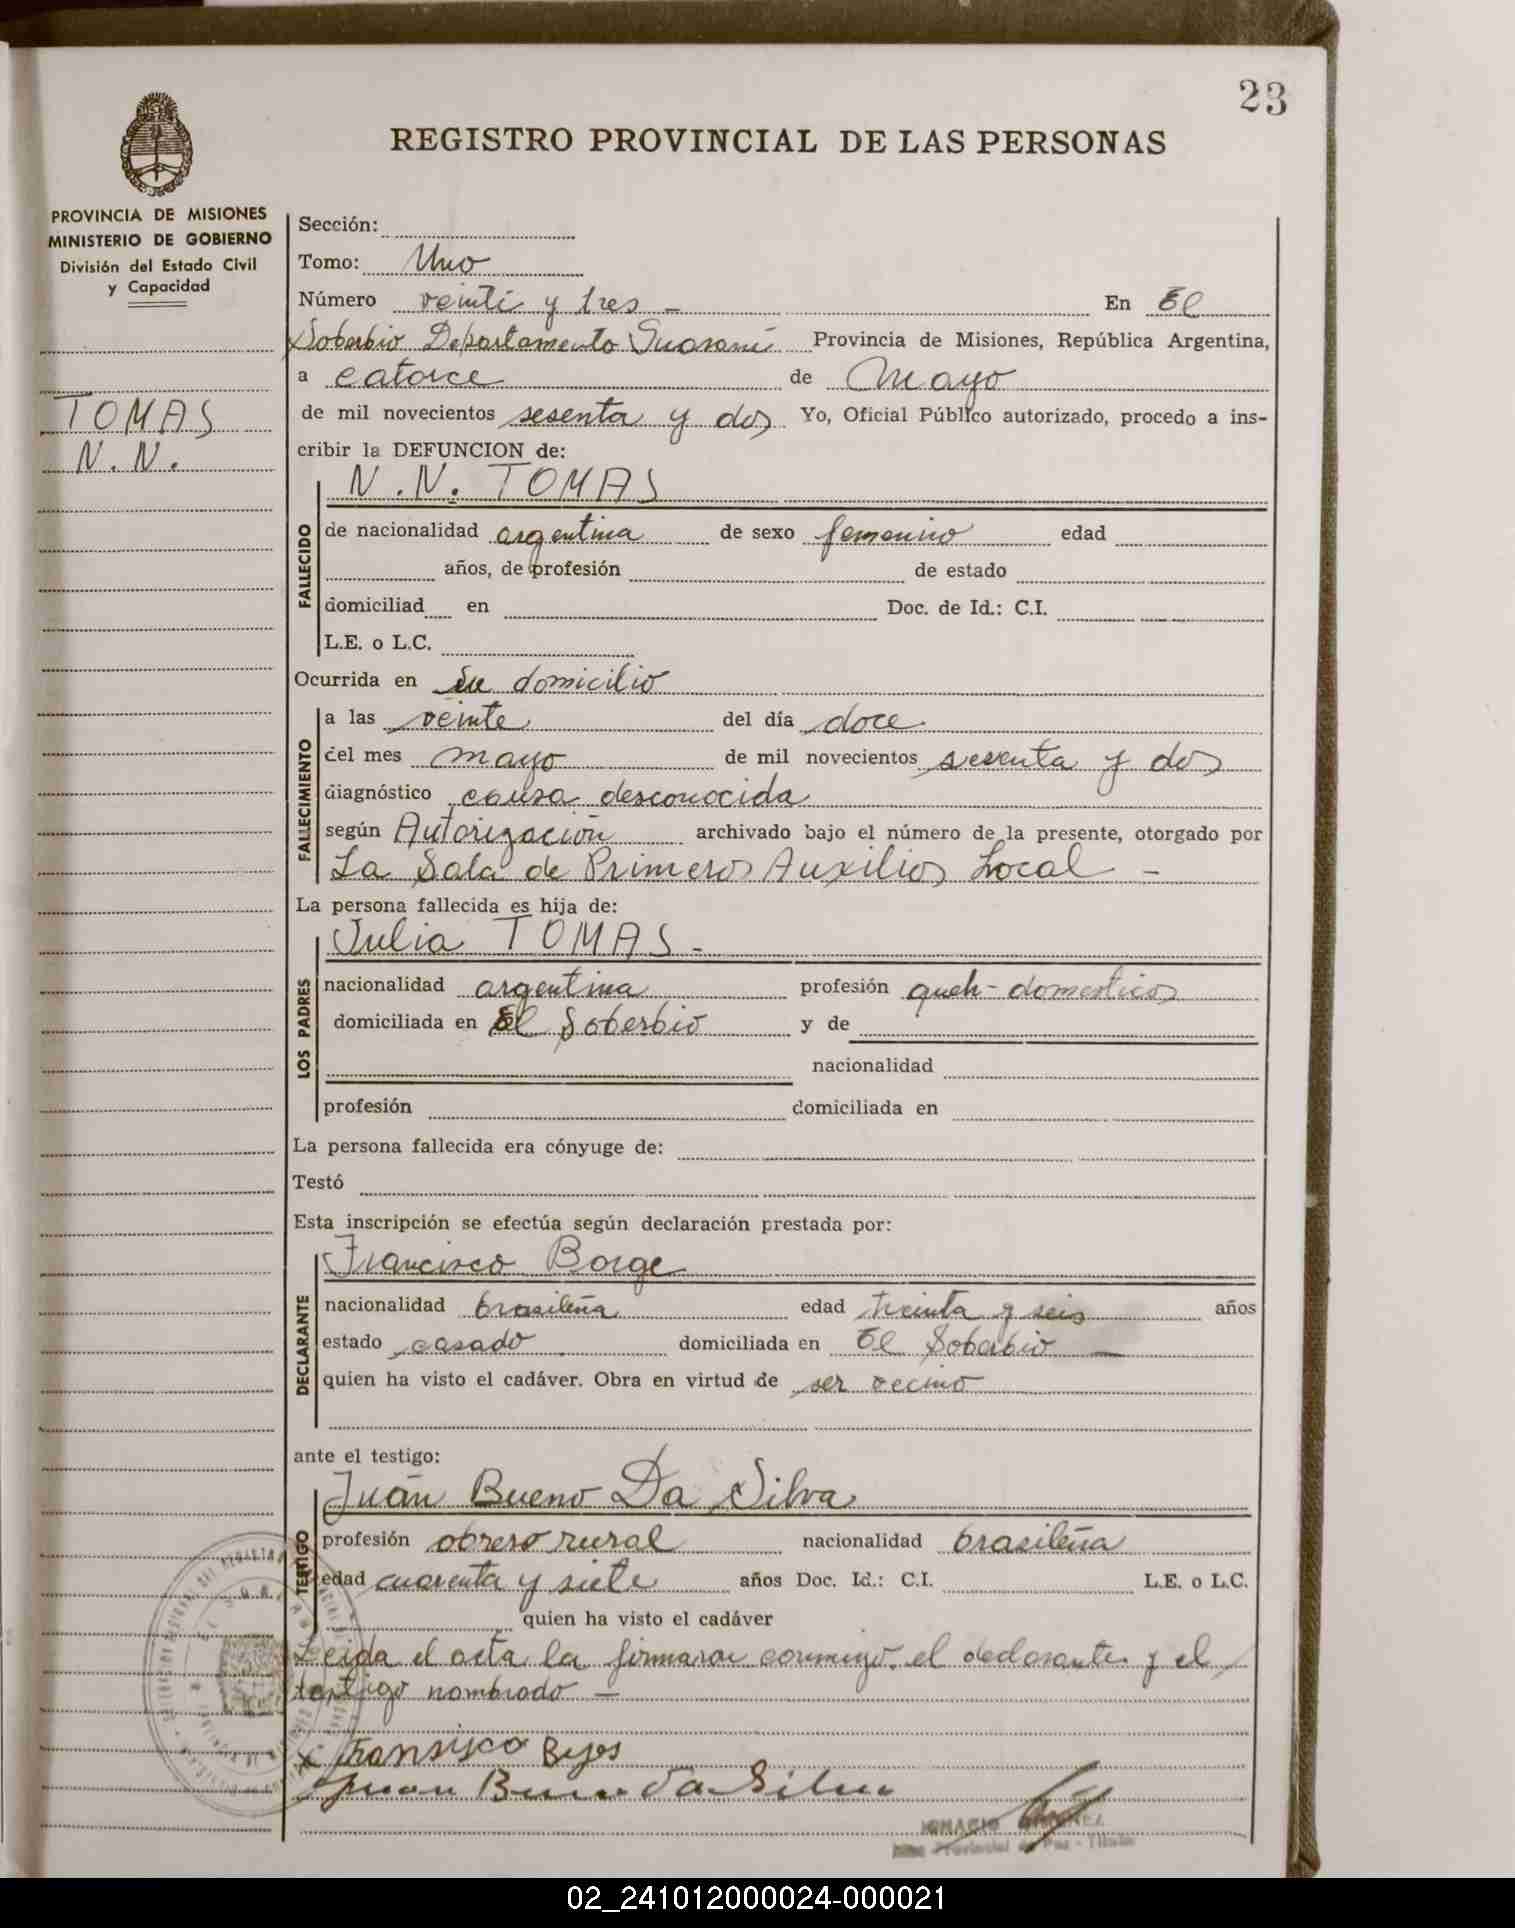 23
REGISTRO PROVINCIAL DE LAS PERSONAS
PROVINCIA DE MISIONES
MINISTERIO DE GOBIERNO
División del Estado Civil
y Capacidad
TOMAS
N. N.
Sección:
Tomo: Uno
Número veinti y tres - En El
Soberbio Departamento Guaraní Provincia de Misiones, República Argentina,
a catorce de Mayo
de mil novecientos sesenta y dos Yo, Oficial Público autorizado, procedo a ins-
cribir la DEFUNCION de:
N. N. TOMAS
FALLECIDO
de nacionalidad argentina de sexo femenino edad
años, de profesión de estado
domiciliad en Doc. de Id.: C.I.
L.E. o L.C.
Ocurrida en su domicilio
FALLECIMIENTO
a las veinte del día doce
del mes mayo de mil novecientos sesenta y dos
diagnóstico causa desconocida
según Autorización archivado bajo el número de la presente, otorgado por
La Sala de Primeros Auxilios Local -
La persona fallecida es hija de:
LOS PADRES
Julia TOMAS -
nacionalidad argentina profesión queh- domesticos
domiciliada en El Soberbio y de
nacionalidad
profesión domiciliada en
La persona fallecida era cónyuge de:
Testó
Esta inscripción se efectúa según declaración prestada por:
DECLARANTE
Francisco Borge
nacionalidad brasileña edad treinta y seis años
estado casado domiciliada en El Soberbio -
quien ha visto el cadáver. Obra en virtud de ser vecino
ante el testigo:
TESTIGO
Juan Bueno Da Silva
profesión obrero rural nacionalidad brasileña
edad cuarenta y siete años Doc. Id.: C.I. L.E. o L.C.
quien ha visto el cadáver
Leida el acta la firmaron conmigo el declarante y el
testigo nombrado -
x Fransisco
Juan Bueno da Silva
IGNACIO
02_241012000024-000021